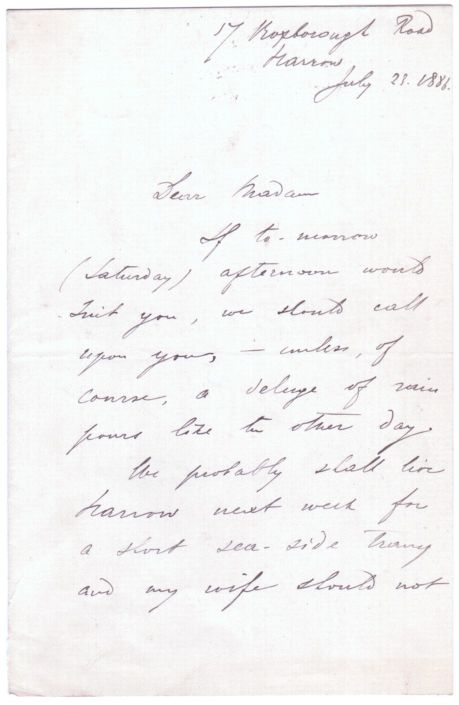 17 Roxborough Road
Harrow
July 23. 1886.
Dear Madam
If to-morrow
(Saturday) afternoon would
suit you, we should call
upon you, – unless, of
course, a deluge of rain
pours like the other day.
We probably shall live
Harrow next week for
a short sea-side
and my wife should not